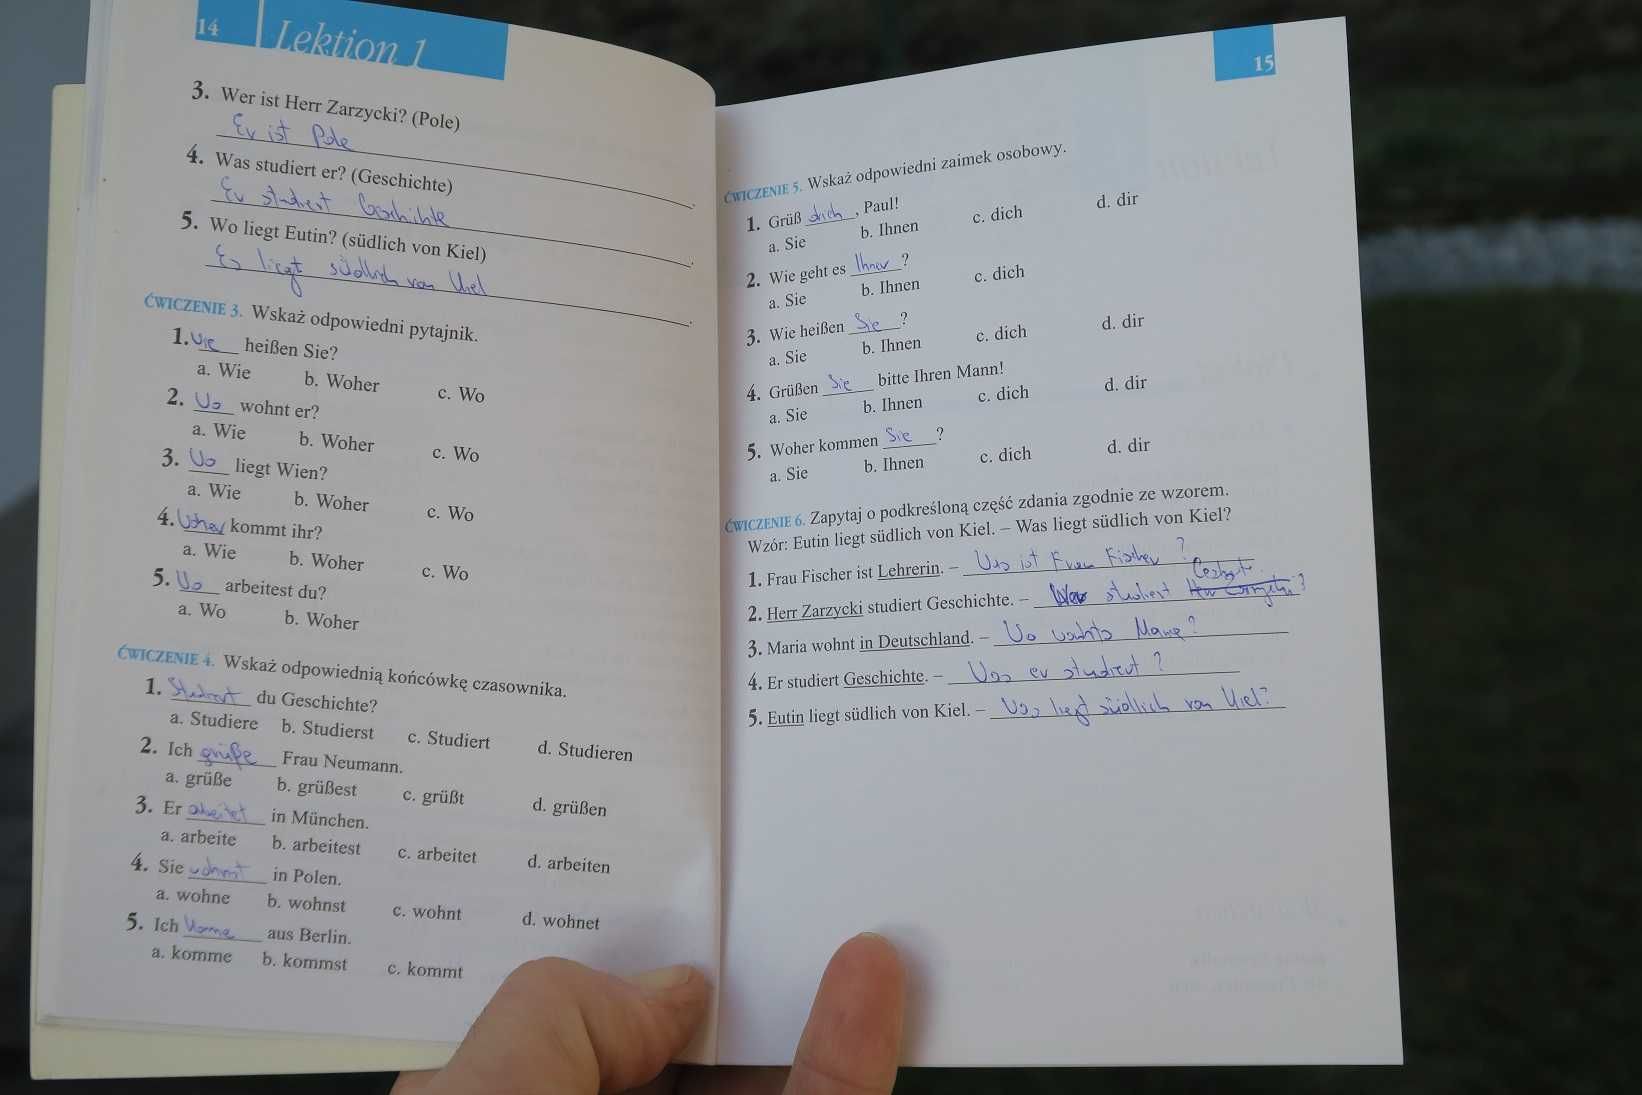 14
Lektion 1
3. Wer ist Herr Zarzycki? (Pole)
Er ist Pole
4. Was studiert er? (Geschichte)
Er studiert Geschichte
5. Wo liegt Eutin? (südlich von Kiel)
Es liegt südlich von Kiel
ĆWICZENIE 3. Wskaż odpowiedni pytajnik.
1. Wie heißen Sie?
a. Wie b. Woher c. Wo
2. Wo wohnt er?
a. Wie b. Woher c. Wo
3. Wo liegt Wien?
a. Wie b. Woher c. Wo
4. Woher kommt ihr?
a. Wie b. Woher c. Wo
5. Wo arbeitest du?
a. Wo b. Woher
ĆWICZENIE 4. Wskaż odpowiednią końcówkę czasownika.
1. du Geschichte?
a. Studiere b. Studierst c. Studiert d. Studieren
2. Ich grüße Frau Neumann.
a. grüße b. grüßest c. grüßt d. grüßen
3. Er in München.
a. arbeite b. arbeitest c. arbeitet d. arbeiten
4. Sie in Polen.
a. wohne b. wohnst c. wohnt d. wohnet
5. Ich komme aus Berlin.
a. komme b. kommst c. kommt
15
ĆWICZENIE 5. Wskaż odpowiedni zaimek osobowy.
1. Grüß dich, Paul!
a. Sie b. Ihnen c. dich d. dir
2. Wie geht es ?
a. Sie b. Ihnen c. dich
3. Wie heißen Sie ?
a. Sie b. Ihnen c. dich d. dir
4. Grüßen Sie bitte Ihren Mann!
a. Sie b. Ihnen c. dich d. dir
5. Woher kommen Sie ?
a. Sie b. Ihnen c. dich d. dir
ĆWICZENIE 6. Zapytaj o podkreśloną część zdania zgodnie ze wzorem.
Wzór: Eutin liegt südlich von Kiel. – Was liegt südlich von Kiel?
1. Frau Fischer ist Lehrerin. – Was ist Frau Fischer ?
2. Herr Zarzycki studiert Geschichte. – Wer studiert ?
3. Maria wohnt in Deutschland. – Wo
4. Er studiert Geschichte. – Was er studiert ?
5. Eutin liegt südlich von Kiel. – Was liegt südlich von Kiel?